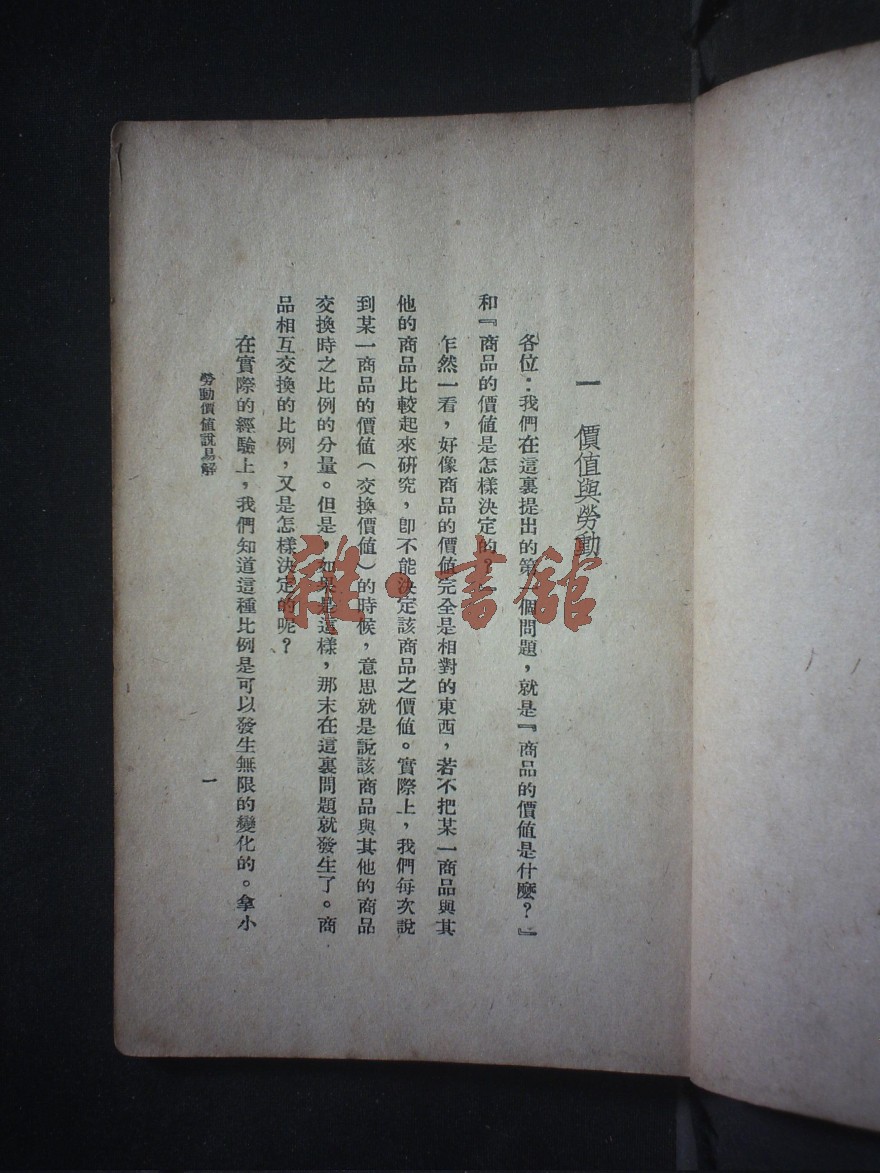 一　價值與勞動
各位：我們在這裏提出的第一個問題，就是『商品的價值是什麼？』
和『商品的價值是怎樣決定的？』
乍然一看，好像商品的價值完全是相對的東西，若不把某一商品與其
他的商品比較起來研究，卽不能決定該商品之價值。實際上，我們每次說
到某一商品的價值（交換價值）的時候，意思就是說該商品與其他的商品
交換時之比例的分量。但是，如果是這樣，那末在這裏問題就發生了。商
品相互交換的比例，又是怎樣決定的呢？
在實際的經驗上，我們知道這種比例是可以發生無限的變化的。拿小
勞動價值說易解
一
雜·書館